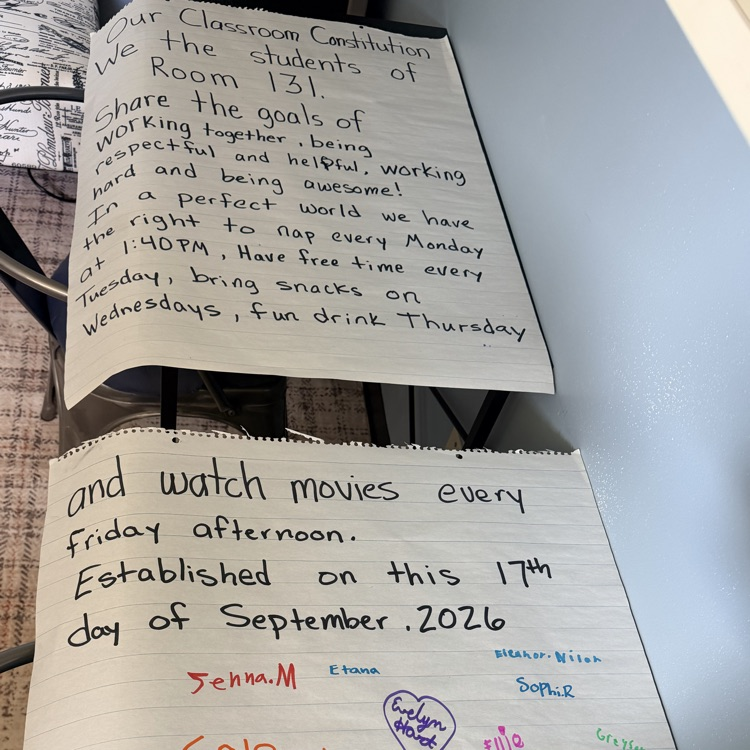 Our Classroom Constitution
We the students of
Room 131.
Share the goals of
working together, being
respectful and helpful, working
hard and being awesome!
In a perfect world we have
the right to nap every Monday
at 1:40PM, Have free time every
Tuesday, bring snacks on
Wednesdays, fun drink Thursday
and watch movies every
friday afternoon.
Established on this 17th
day of September.2026
Jenna.M
Etana
Eleanor.Wilon
Sophi.R
Evelyn
Hart
Ellie